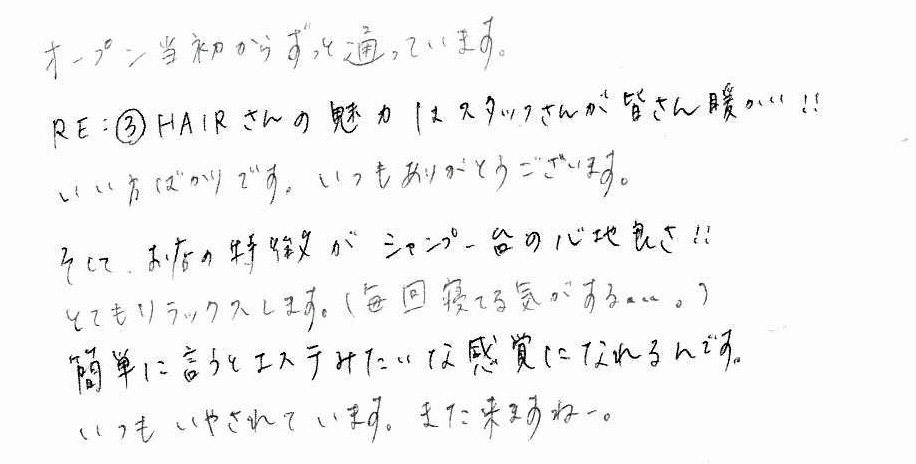 オープン当初からずっと通っています。
RE:③HAIRさんの魅力はスタッフさんが皆さん暖かい!!
いい方ばかりです。いつもありがとうございます。
そして、お店の特徴がシャンプー台の心地良さ!!
とてもリラックスします。(毎回寝てる気がする...。)
簡単に言うとエステみたいな感覚になれるんです。
いつもいやされています。また来ますねー。